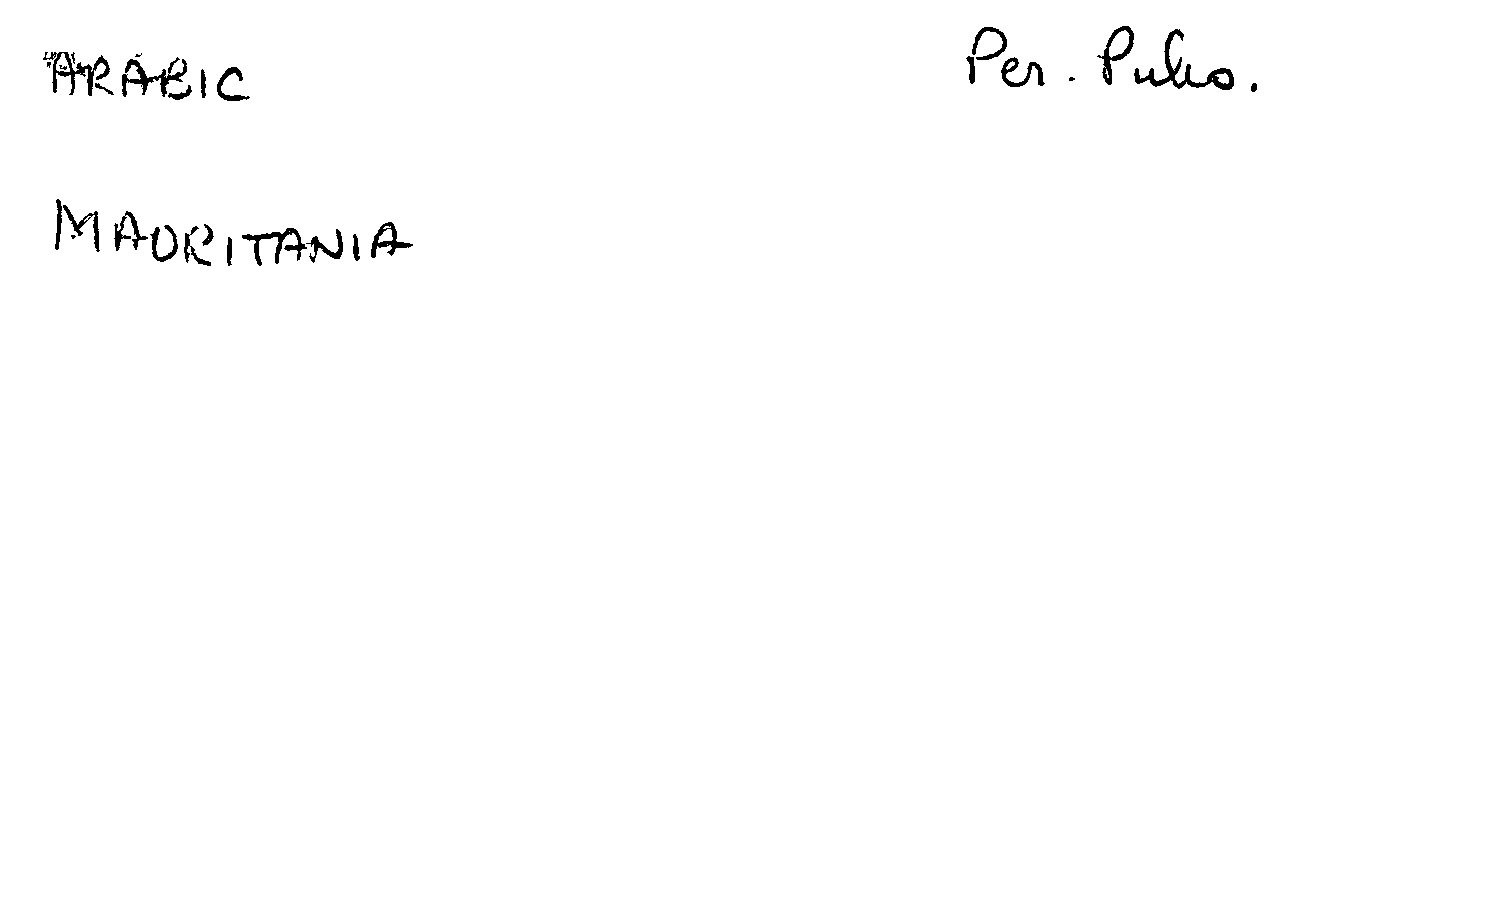 ARABIC Per. Pubs.
MAURITANIA